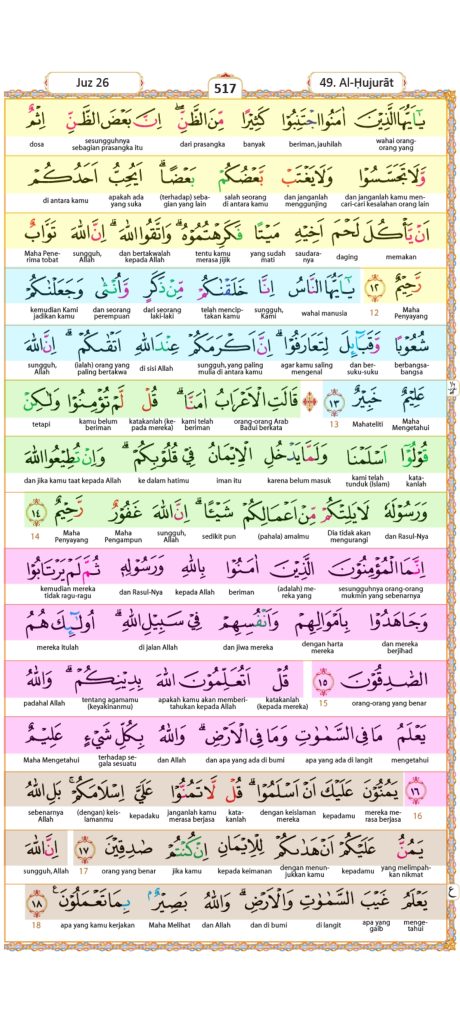 Juz 26
517
49. Al-Ḥujurāt
يٰٓاَيُّهَا الَّذِيْنَ اٰمَنُوا اجْتَنِبُوْا كَثِيْرًا مِّنَ الظَّنِّۖ اِنَّ بَعْضَ الظَّنِّ اِثْمٌ
wahai orang-orang yang beriman, jauhilah banyak dari prasangka sesungguhnya sebagian prasangka itu dosa
وَّلَا تَجَسَّسُوْا وَلَا يَغْتَبْ بَّعْضُكُمْ بَعْضًاۗ اَيُحِبُّ اَحَدُكُمْ
dan janganlah kamu mencari-cari kesalahan orang lain dan janganlah menggunjing salah seorang di antara kamu (terhadap) sebagian yang lain apakah ada yang suka di antara kamu
اَنْ يَّأْكُلَ لَحْمَ اَخِيْهِ مَيْتًا فَكَرِهْتُمُوْهُۗ وَاتَّقُوا اللّٰهَۗ اِنَّ اللّٰهَ تَوَّابٌ
memakan daging saudaranya yang sudah mati tentu kamu merasa jijik dan bertakwalah kepada Allah sungguh, Allah Maha Penerima tobat
رَّحِيْمٌ ١٢ يٰٓاَيُّهَا النَّاسُ اِنَّا خَلَقْنٰكُمْ مِّنْ ذَكَرٍ وَّاُنْثٰى وَجَعَلْنٰكُمْ
Maha Penyayang 12 wahai manusia sungguh, Kami telah menciptakan kamu dari seorang laki-laki dan seorang perempuan kemudian Kami jadikan kamu
شُعُوْبًا وَّقَبَاۤىِٕلَ لِتَعَارَفُوْاۗ اِنَّ اَكْرَمَكُمْ عِنْدَ اللّٰهِ اَتْقٰىكُمْۗ اِنَّ اللّٰهَ
berbangsa-bangsa dan bersuku-suku agar kamu saling mengenal sungguh, yang paling mulia di antara kamu di sisi Allah (ialah) orang yang paling bertakwa sungguh, Allah
عَلِيْمٌ خَبِيْرٌ ١٣ ۞ قَالَتِ الْاَعْرَابُ اٰمَنَّاۗ قُلْ لَّمْ تُؤْمِنُوْا وَلٰكِنْ
Maha Mengetahui Mahateliti 13 orang-orang Arab Badui berkata kami telah beriman katakanlah (kepada mereka) kamu belum beriman tetapi
قُوْلُوْٓا اَسْلَمْنَا وَلَمَّا يَدْخُلِ الْاِيْمَانُ فِيْ قُلُوْبِكُمْۗ وَاِنْ تُطِيْعُوا اللّٰهَ
katakanlah kami telah tunduk (Islam) karena belum masuk iman itu ke dalam hatimu dan jika kamu taat kepada Allah
وَرَسُوْلَهٗ لَا يَلِتْكُمْ مِّنْ اَعْمَالِكُمْ شَيْـًٔاۗ اِنَّ اللّٰهَ غَفُوْرٌ رَّحِيْمٌ ١٤
dan Rasul-Nya Dia tidak akan mengurangi (pahala) amalmu sedikit pun sungguh, Allah Maha Pengampun Maha Penyayang 14
اِنَّمَا الْمُؤْمِنُوْنَ الَّذِيْنَ اٰمَنُوْا بِاللّٰهِ وَرَسُوْلِهٖ ثُمَّ لَمْ يَرْتَابُوْا
sesungguhnya orang-orang mukmin yang sebenarnya (adalah) mereka yang beriman kepada Allah dan Rasul-Nya kemudian mereka tidak ragu-ragu
وَجَاهَدُوْا بِاَمْوَالِهِمْ وَاَنْفُسِهِمْ فِيْ سَبِيْلِ اللّٰهِۗ اُولٰۤىِٕكَ هُمُ
dan mereka berjihad dengan harta mereka dan jiwa mereka di jalan Allah mereka itulah
الصّٰدِقُوْنَ ١٥ قُلْ اَتُعَلِّمُوْنَ اللّٰهَ بِدِيْنِكُمْۗ وَاللّٰهُ
orang-orang yang benar 15 katakanlah (kepada mereka) apakah kamu akan memberitahukan kepada Allah tentang agamamu (keyakinanmu) padahal Allah
يَعْلَمُ مَا فِى السَّمٰوٰتِ وَمَا فِى الْاَرْضِۗ وَاللّٰهُ بِكُلِّ شَيْءٍ عَلِيْمٌ
mengetahui apa yang ada di langit dan apa yang ada di bumi dan Allah terhadap segala sesuatu Maha Mengetahui
١٦ يَمُنُّوْنَ عَلَيْكَ اَنْ اَسْلَمُوْاۗ قُلْ لَّا تَمُنُّوْا عَلَيَّ اِسْلَامَكُمْۚ بَلِ اللّٰهُ
16 mereka merasa berjasa kepadamu dengan keislaman mereka katakanlah janganlah kamu merasa berjasa kepadaku (dengan) keislamanmu sebenarnya Allah
يَمُنُّ عَلَيْكُمْ اَنْ هَدٰىكُمْ لِلْاِيْمَانِ اِنْ كُنْتُمْ صٰدِقِيْنَ ١٧ اِنَّ اللّٰهَ
yang melimpahkan nikmat kepadamu dengan menunjukkan kamu kepada keimanan jika kamu orang yang benar 17 sungguh, Allah
يَعْلَمُ غَيْبَ السَّمٰوٰتِ وَالْاَرْضِۗ وَاللّٰهُ بَصِيْرٌۢ بِمَا تَعْمَلُوْنَ ١٨
mengetahui apa yang gaib di langit dan di bumi dan Allah Maha Melihat apa yang kamu kerjakan 18
ع